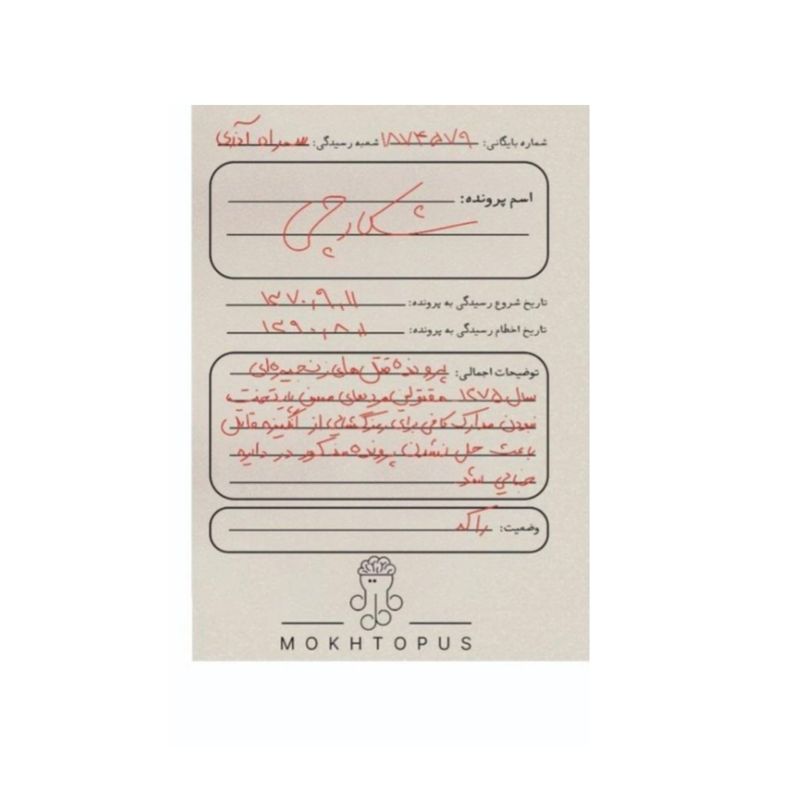 شماره بایگانی: ۱۸۷۴۵۷۹ شعبه رسیدگی: سهراه آذری
اسم پرونده:
شکارچی
تاریخ شروع رسیدگی به پرونده: ۱۳۷۰,۹,۱۱
تاریخ اخطام رسیدگی به پرونده: ۱۳۹۰,۸,۱۱
توضیحات اجمالی: پرونده قتل های زنجیره‌ای
سال ۱۳۷۵ مقتولین مردهای مسن پایتخت
نبودن مدارک کافی برای رمزگشایی از انگیزه قاتل
باعث حل نشدن پرونده مذکور در دایره
جنایی شد
وضعیت: راکد
MOKHTOPUS